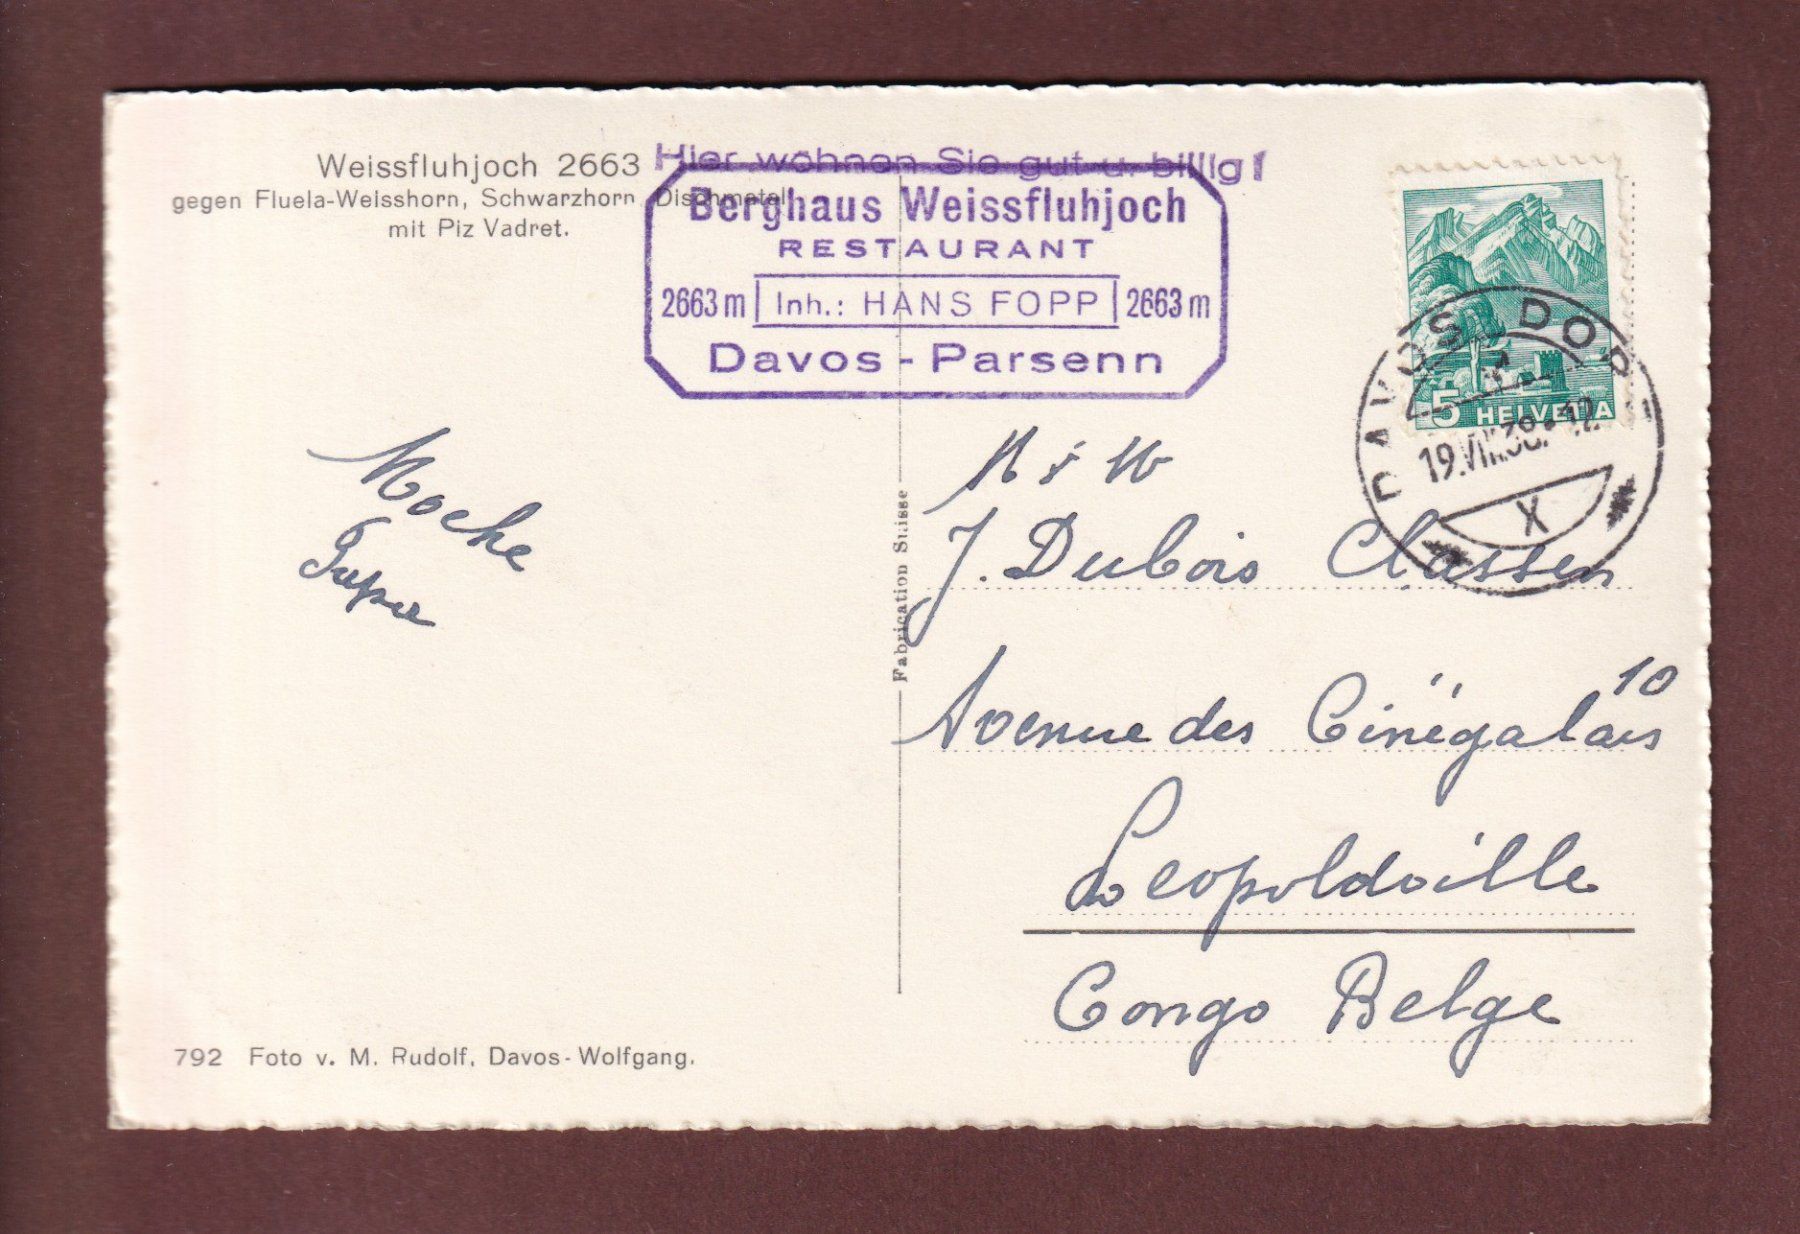 Weissfluhjoch 2663
gegen Fluela-Weisshorn, Schwarzhorn Dischmatal
mit Piz Vadret.
Hier wöhnen Sie gut u. billig!
Berghaus Weissfluhjoch
RESTAURANT
2663 m Inh.: HANS FOPP 2663 m
Davos - Parsenn
5 HELVETIA
DAVOS DORF
19.VIII.38. 12
X
J. Dubois Classen
Avenue des Cinégalais 10
Leopoldville
Congo Belge
Fabrication Suisse
792 Foto v. M. Rudolf, Davos-Wolfgang.